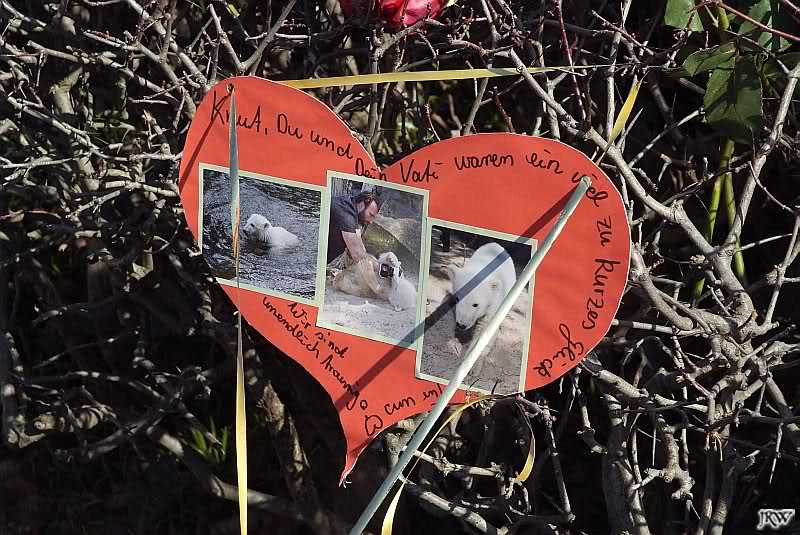 Knut, Du und Dein Vati waren ein viel zu kurzes Glück
Wir sind
unendlich traurig
JRW